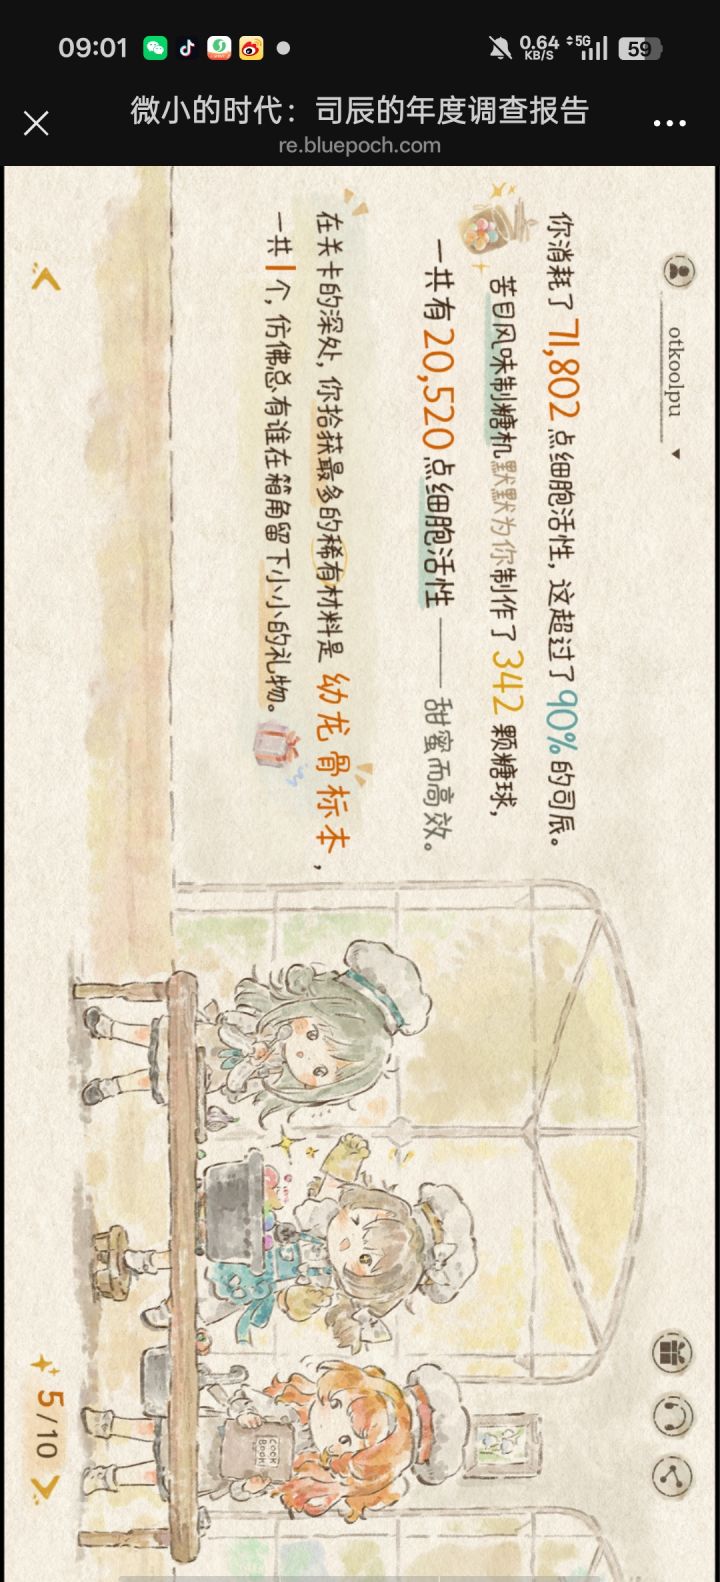 09:01
0.64 KB/S
5G
59
微小的时代：司辰的年度调查报告
re.bluepoch.com
otkoolpu
你消耗了 71,802 点细胞活性，这超过了 90% 的司辰。
苦目风味制糖机默默为你制作了 342 颗糖球，
一共有 20,520 点细胞活性——甜蜜而高效。
在关卡的深处，你拾获最多的稀有材料是 幼龙骨标本，
一共 1 个，仿佛总有谁在箱角留下小小的礼物。
COOK BOOK
5/10